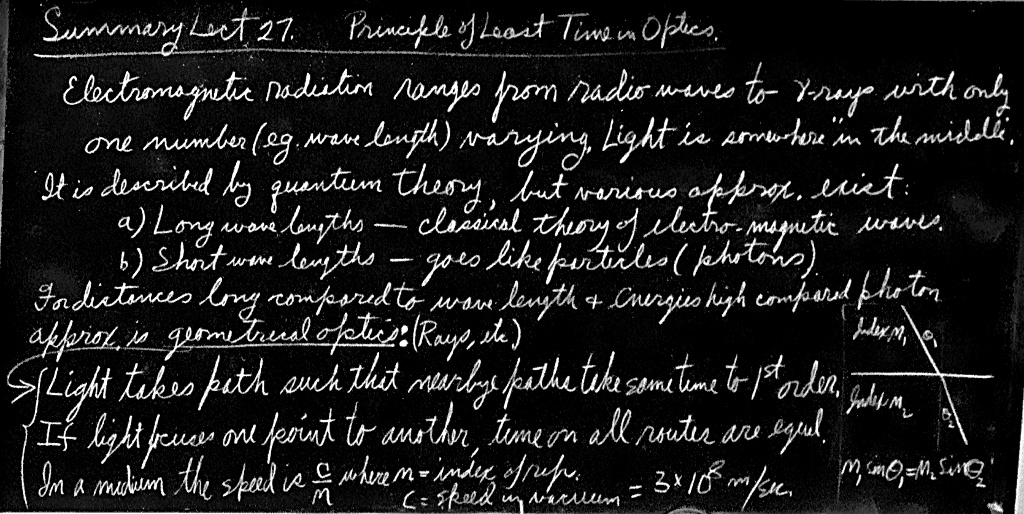 Summary Lect 27. Principle of Least Time in Optics.
Electromagnetic radiation ranges from radio waves to γ-rays with only
one number (eg. wave length) varying. Light is somewhere "in the middle".
It is described by quantum theory, but various approx. exist:
a) Long wave lengths — classical theory of electro-magnetic waves.
b) Short wave lengths — goes like particles (photons)
For distances long compared to wave length & energies high compared photon
approx. is geometrical optics: (Rays, etc.)
Light takes path such that nearbye paths take same time to 1st order.
If light focuses one point to another, time on all routes are equal.
In a medium the speed is c/n where n = index of refr.
c = speed in vacuum = 3×10^8 m/sec.
Index n₁ θ₁
Index n₂ θ₂
n₁ sin θ₁ = n₂ sin θ₂